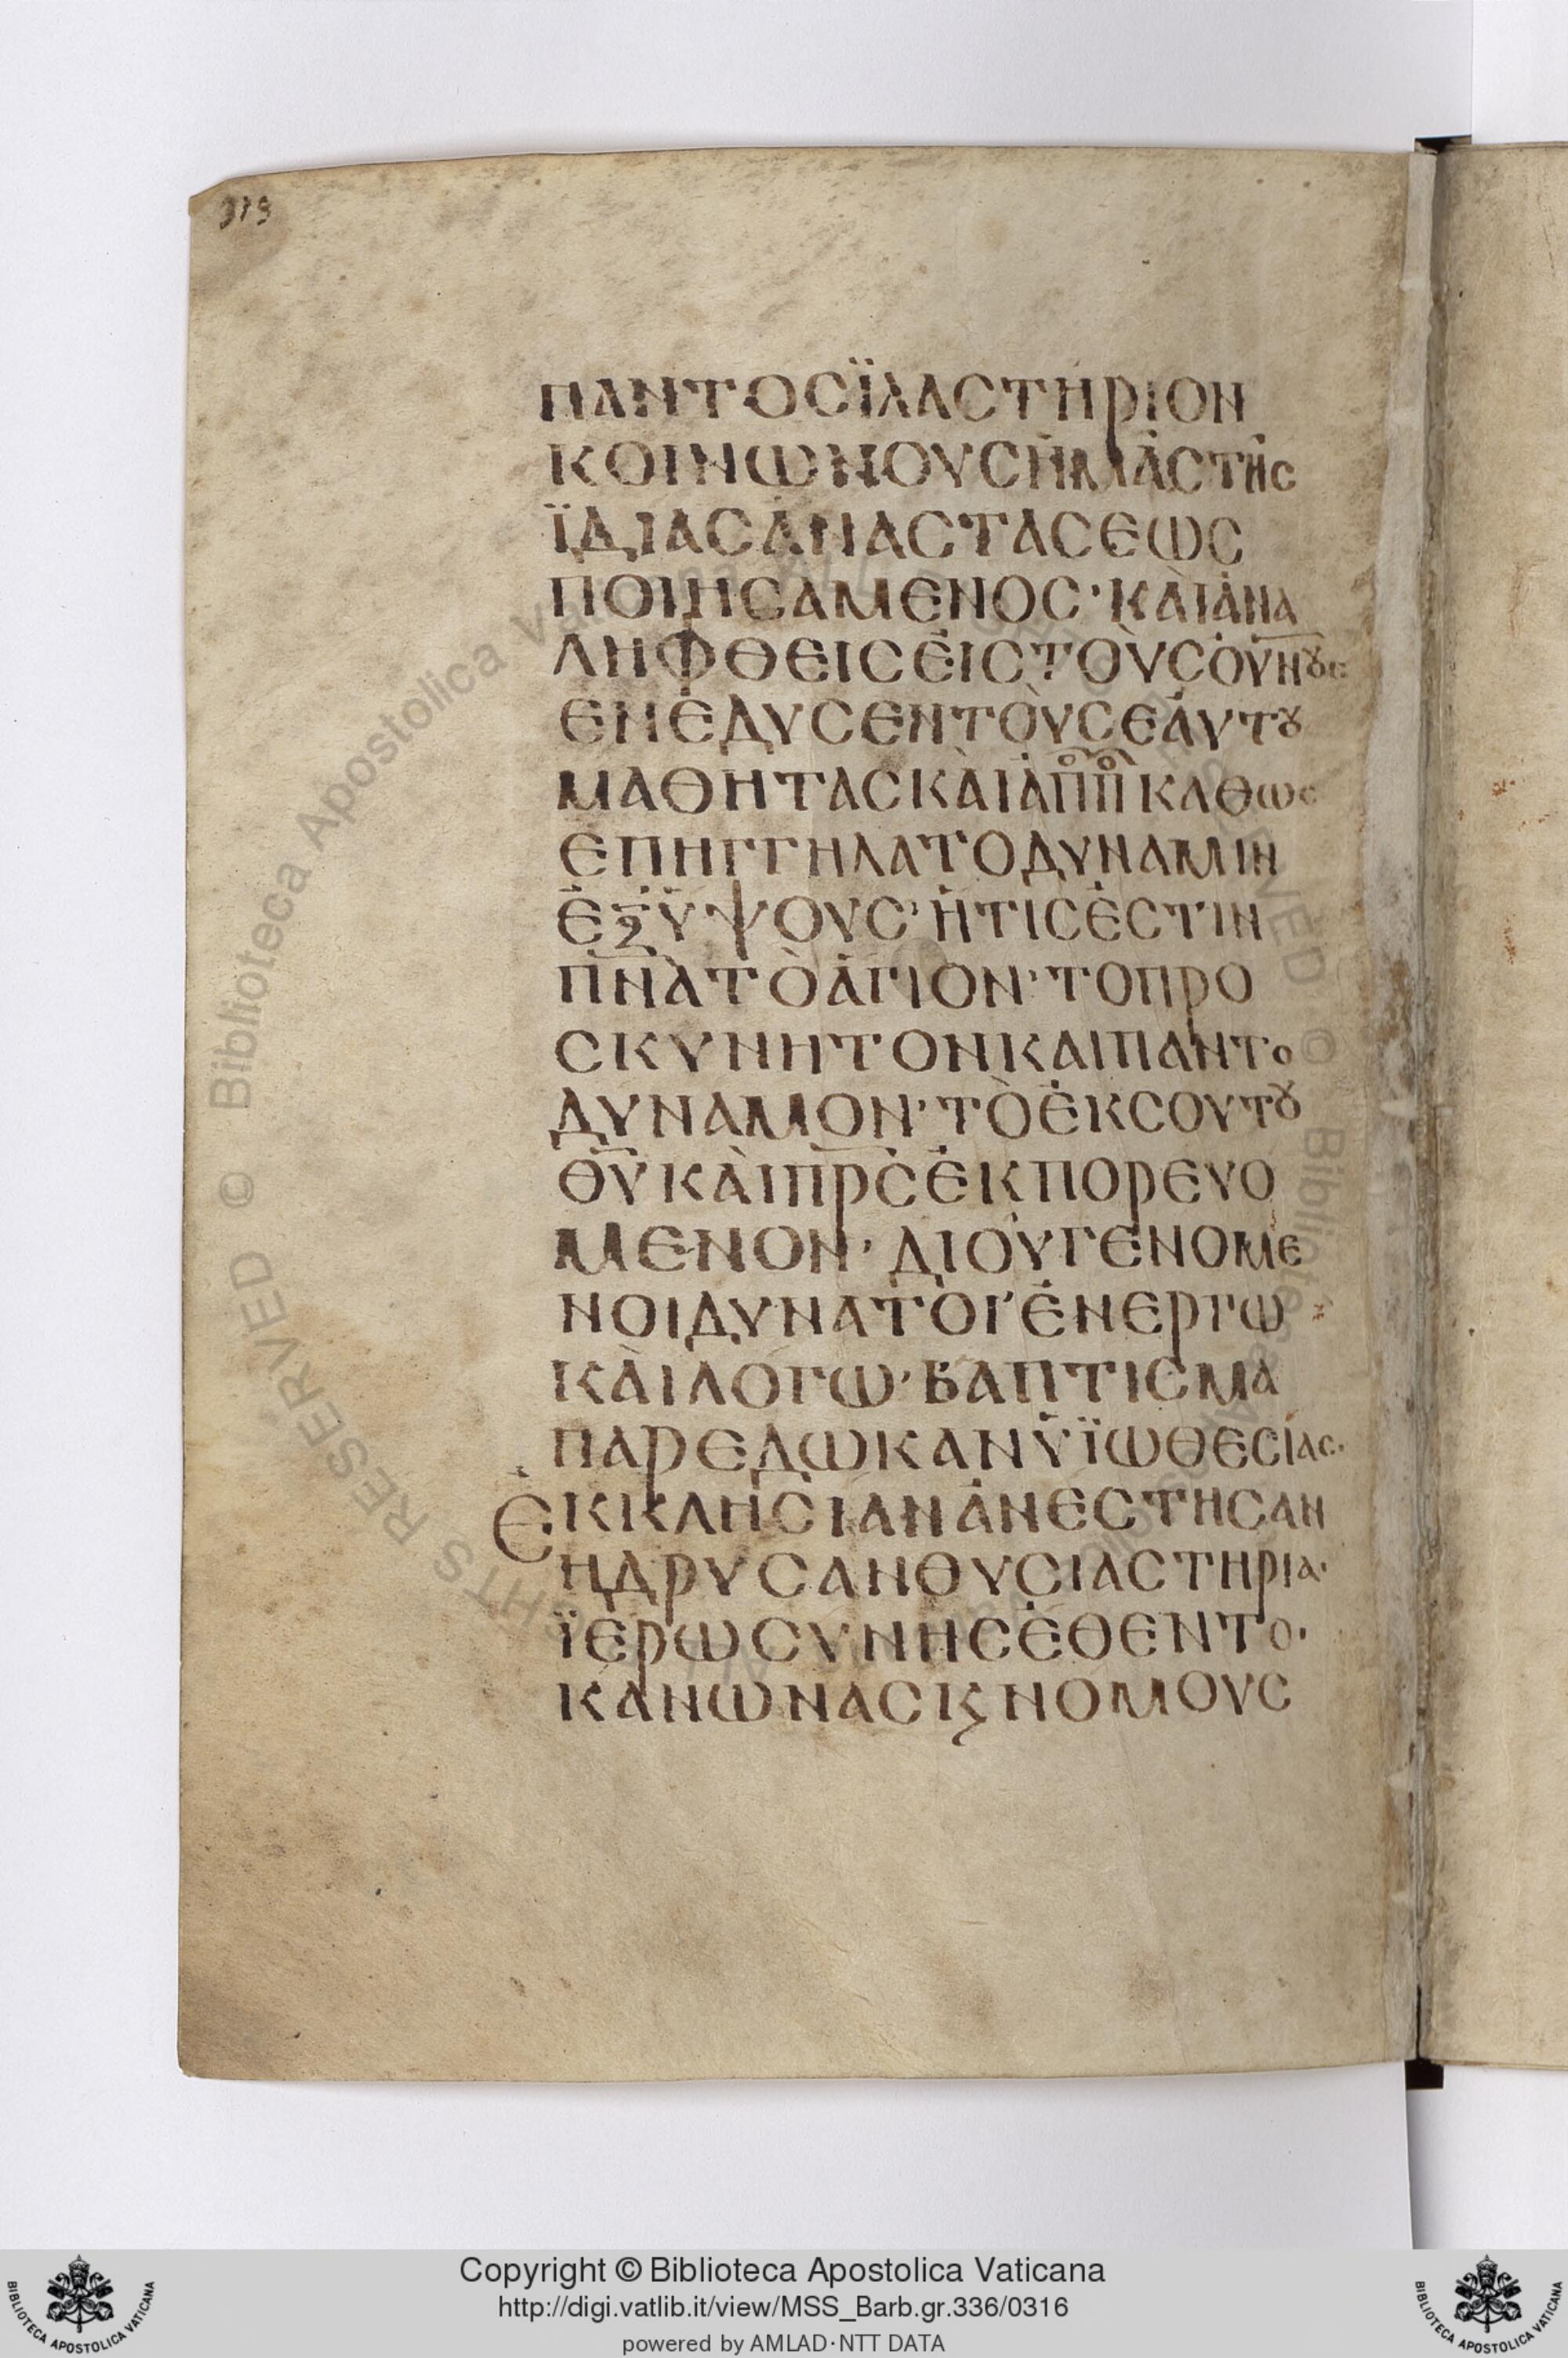 313
ΠΑΝΤΟСΪΛΑСΤΗΡΙΟΝ
ΚΟΙΝΩΝΟΥСΗΜΑСΤΗС
ΪΔΙΑСΑΝΑСΤΑСΕΩС
ΠΟΙΗСΑΜΕΝΟС·ΚΑῚΑΝΑ
ΛΗΦΘΕΙСΕΙСΤΟῪСΟΥ̅Ν̅ȣс
ΕΝΕΔΥСΕΝΤΟῪСΕΑΥΤȣ
ΜΑΘΗΤΑСΚΑῚΑΠΠ̅ΚΑΘως
ΕΠΗΓΓΗΛΑΤΟΔΥΝΑΜΙΝ
ΕΞΫΨΟΥС·ΗΤΙСΕСΤΙΝ
Π̅Ν̅Α̅ΤῸΑΓΙΟΝ·ΤΟΠΡΟ
СΚΥΝΗΤΟΝΚΑΙΠΑΝΤο
ΔΥΝΑΜΟΝ·ΤῸΕΚСΟΥΤȣ
Θ̅Υ̅ΚΑῚΠ̅Ρ̅С̅ΕΚΠΟΡΕΥΟ
ΜΕΝΟΝ·ΔΙΟΥΓΕΝΟΜΕ
ΝΟΙΔΥΝΑΤΟΙ·ΕΝΕΡΓΩ
ΚΑῚΛΟΓΩ·ΒΑΠΤΙСΜΑ
ΠΑΡΕΔΩΚΑΝΥΪΩΘΕСΙΑС·
ΕΚΚΛΗСΙΑΝΑΝΕСΤΗСΑΝ
ΗΔΡΥСΑΝΘΥСΙΑСΤΗΡΙΑ·
ΪΕΡΩСΥΝΗСΕΘΕΝΤΟ·
ΚΑΝΩΝΑСΚϚΝΟΜΟΥС
© Biblioteca Apostolica Vaticana
Copyright © Biblioteca Apostolica Vaticana
http://digi.vatlib.it/view/MSS_Barb.gr.336/0316
powered by AMLAD·NTT DATA
BIBLIOTECA APOSTOLICA VATICANA
BIBLIOTECA APOSTOLICA VATICANA